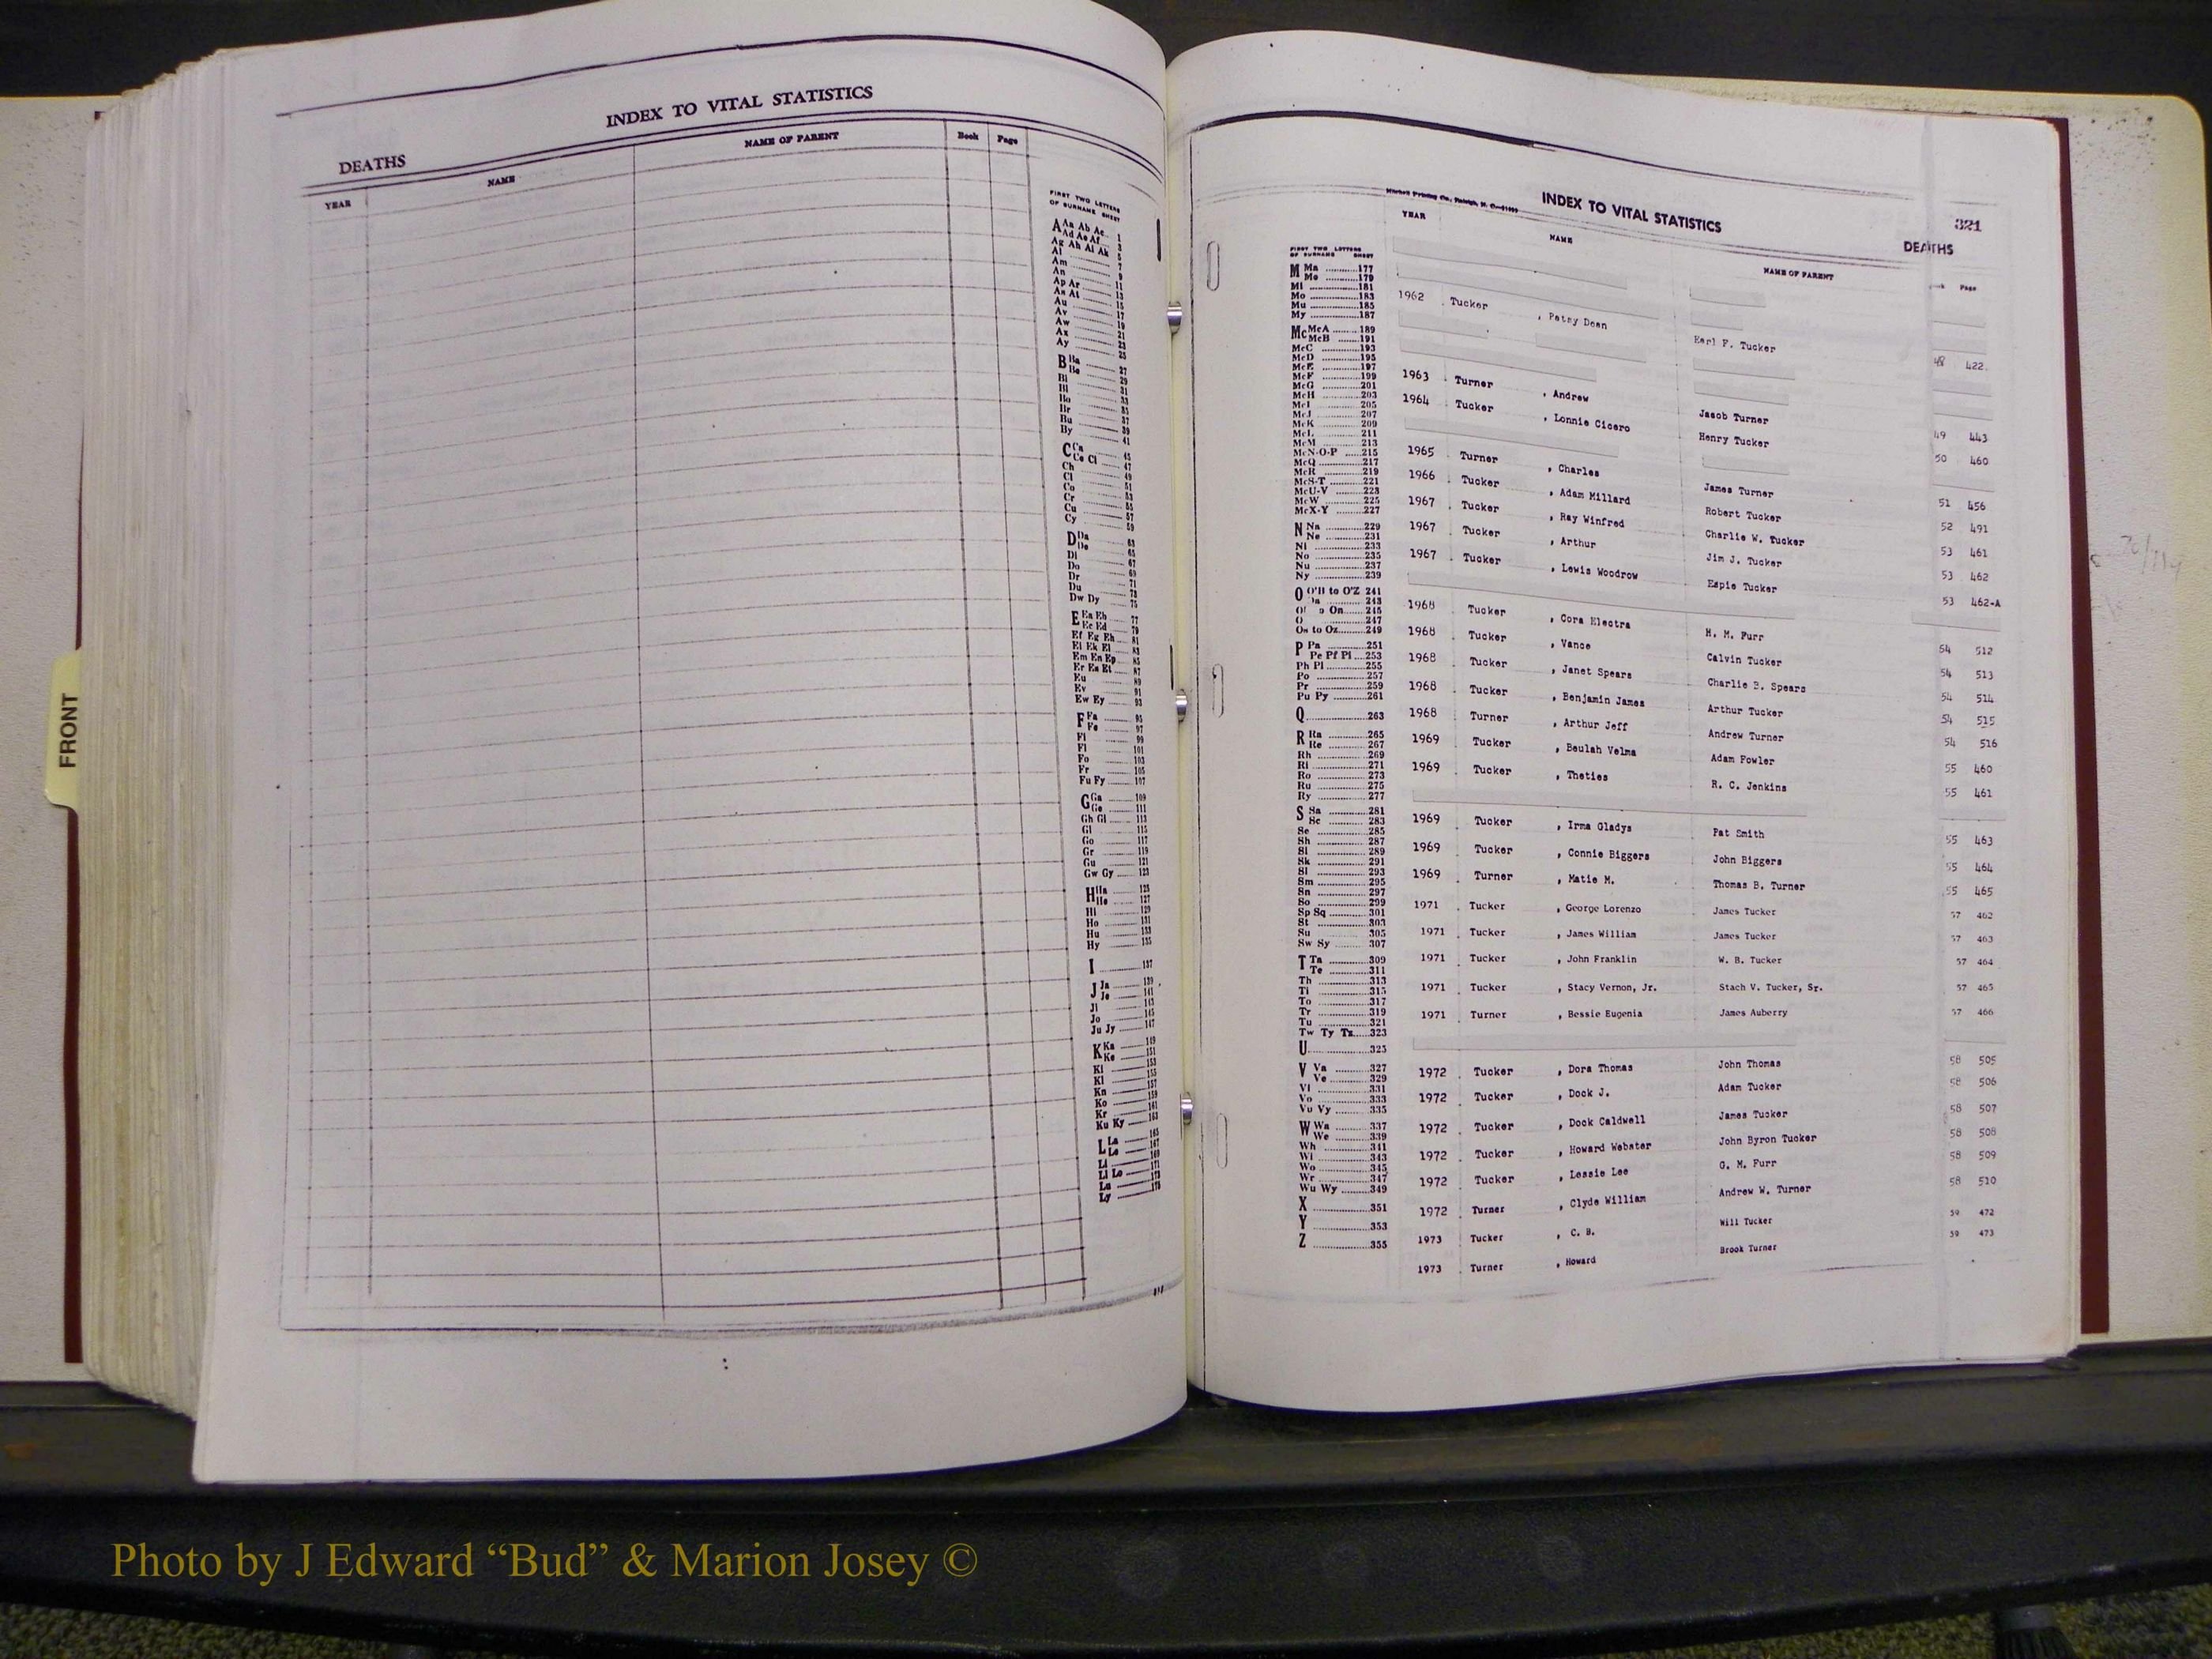 INDEX TO VITAL STATISTICS
DEATHS
YEAR NAME NAME OF PARENT Book Page
FIRST TWO LETTERS
OF SURNAME SHEET
A Aa Ab Ac 1
Ad Ae Af 3
Ag Ah Ai Ak 5
Al 7
Am 9
An 11
Ap Ar 13
As At 15
Au 17
Av 19
Aw 21
Ax 23
Ay 25
B Ba 27
Be 29
Bi 31
Bl 33
Bo 35
Br 37
Bu 39
By 41
C Ca 45
Ce Ci 47
Ch 49
Cl 51
Co 53
Cr 55
Cu 57
Cy 59
D Da 63
De 65
Di 67
Do 69
Dr 71
Du 73
Dw Dy 75
E Ea Eb 77
Ec Ed 79
Ef Eg Eh 81
Ei Ek El 83
Em En Ep 85
Er Es Et 87
Eu 89
Ev 91
Ew Ey 93
F Fa 95
Fe 97
Fi 99
Fl 101
Fo 103
Fr 105
Fu Fy 107
G Ga 109
Ge 111
Gh Gi 113
Gl 115
Go 117
Gr 119
Gu 121
Gw Gy 123
H Ha 125
He 127
Hi 129
Ho 131
Hu 133
Hy 135
I 137
J Ja 139
Je 141
Ji 143
Jo 145
Ju Jy 147
K Ka 149
Ke 151
Ki 153
Kl 155
Kn 157
Ko 159
Kr 161
Ku Ky 163
L La 165
Le 167
Li 169
Ll Lo 171
Lu
Ly
FRONT
Mitchell Printing Co., Raleigh, N. C.
INDEX TO VITAL STATISTICS
321
DEATHS
YEAR NAME NAME OF PARENT Page
FIRST TWO LETTERS
OF SURNAME SHEET
M Ma 177
Me 179
Mi 181
Mo 183
Mu 185
My 187
Mc McA 189
McB 191
McC 193
McD 195
McE 197
McF 199
McG 201
McH 203
McI 205
McJ 207
McK 209
McL 211
McM 213
McN-O-P 215
McQ 217
McR 219
McS-T 221
McU-V 223
McW 225
McX-Y 227
N Na 229
Ne 231
Ni 233
No 235
Nu 237
Ny 239
O O'B to O'Z 241
243
On 245
O 247
Os to Oz 249
P Pa 251
Pe Pf Pi 253
Ph Pl 255
Po 257
Pr 259
Pu Py 261
Q 263
R Ra 265
Re 267
Rh 269
Ri 271
Ro 273
Ru 275
Ry 277
S Sa 281
Sc 283
Se 285
Sh 287
Si 289
Sk 291
Sl 293
Sm 295
Sn 297
So 299
Sp Sq 301
St 303
Su 305
Sw Sy 307
T Ta 309
Te 311
Th 313
Ti 315
To 317
Tr 319
Tu 321
Tw Ty Tz 323
U 325
V Va 327
Ve 329
Vi 331
Vo 333
Vu Vy 335
W Wa 337
We 339
Wh 341
Wi 343
Wo 345
Wr 347
Wu Wy 349
X 351
Y 353
Z 355
1962 Tucker , Patsy Dean Earl F. Tucker 48 422
1963 Turner , Andrew Jasob Turner 49 443
1964 Tucker , Lonnie Cicero Henry Tucker 50 460
1965 Turner , Charles James Turner 51 456
1966 Tucker , Adam Millard Robert Tucker 52 491
1967 Tucker , Ray Winfred Charlie W. Tucker 53 461
1967 Tucker , Arthur Jim J. Tucker 53 462
1967 Tucker , Lewis Woodrow Espie Tucker 53 462-A
1968 Tucker , Cora Electra H. M. Furr 54 512
1968 Tucker , Vance Calvin Tucker 54 513
1968 Tucker , Janet Spears Charlie B. Spears 54 514
1968 Tucker , Benjamin James Arthur Tucker 54 515
1968 Turner , Arthur Jeff Andrew Turner 54 516
1969 Tucker , Beulah Velma Adam Fowler 55 460
1969 Tucker , Theties R. C. Jenkins 55 461
1969 Tucker , Irma Gladys Pat Smith 55 463
1969 Tucker , Connie Biggers John Biggers 55 464
1969 Turner , Matie M. Thomas B. Turner 55 465
1971 Tucker , George Lorenzo James Tucker 57 462
1971 Tucker , James William James Tucker 57 463
1971 Tucker , John Franklin W. B. Tucker 57 464
1971 Tucker , Stacy Vernon, Jr. Stach V. Tucker, Sr. 57 465
1971 Turner , Bessie Eugenia James Auberry 57 466
1972 Tucker , Dora Thomas John Thomas 58 505
1972 Tucker , Dock J. Adam Tucker 58 506
1972 Tucker , Dock Caldwell James Tucker 58 507
1972 Tucker , Howard Webster John Byron Tucker 58 508
1972 Tucker , Lessie Lee G. M. Furr 58 509
1972 Turner , Clyde William Andrew W. Turner 58 510
1973 Tucker , C. B. Will Tucker 59 472
1973 Turner , Howard Brook Turner 59 473
Photo by J Edward “Bud” & Marion Josey ©